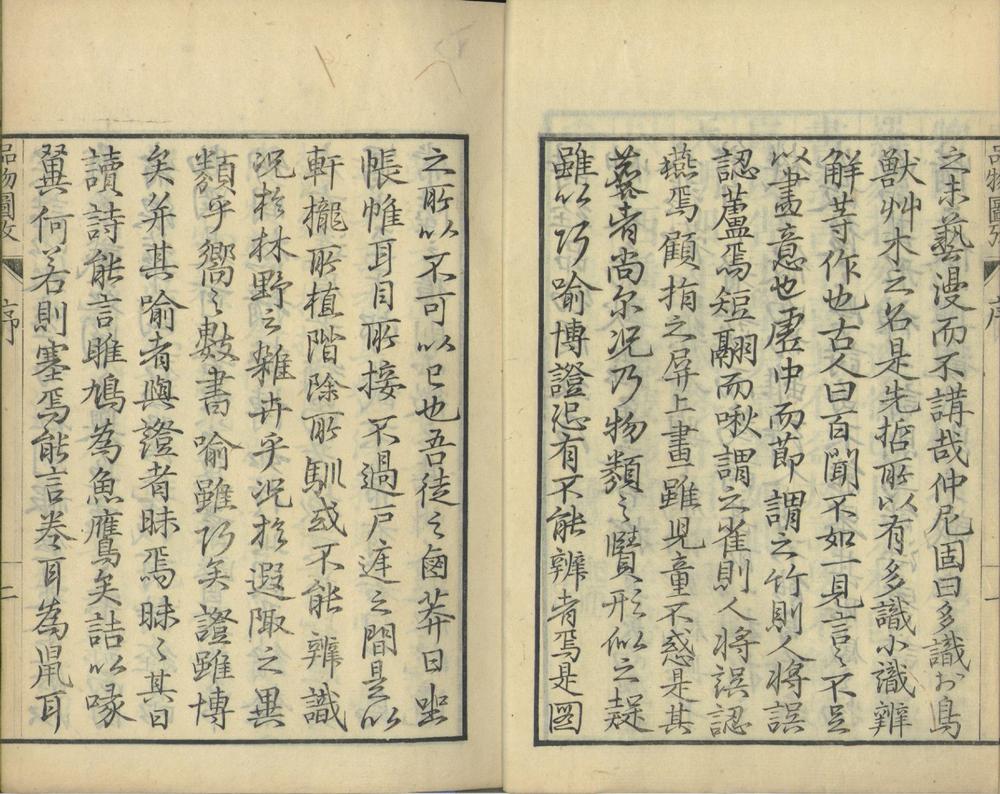 之末藝漫而不講哉仲尼固曰多識於鳥
獸艸木之名是先哲所以有多識小識辨
解等作也古人曰百聞不如一見言之不足
以盡意也虛中而節謂之竹則人將誤
認蘆焉短翮而啾謂之雀則人將誤認
燕焉顧指之屏上畫雖児童不惑是其
彝者尚尔况乃物類之賾形似之疑
雖以巧喻博證恐有不能辨者焉是圖
品物圖攷 序 一
之所以不可以已也吾徒之鹵莽日坐
帳帷耳目所接不過戸庭之間是以
軒櫳所植階除所馴或不能辨識
况於林野之雜卉乎况於遐陬之異
類乎嚮之數書喻雖巧矣證雖博
矣并其喻者與證者昧焉昧之其曰
讀詩能言雎鳩為魚鷹矣詰以喙
翼何若則塞焉能言卷耳為鼠耳
品物圖攷 序 二